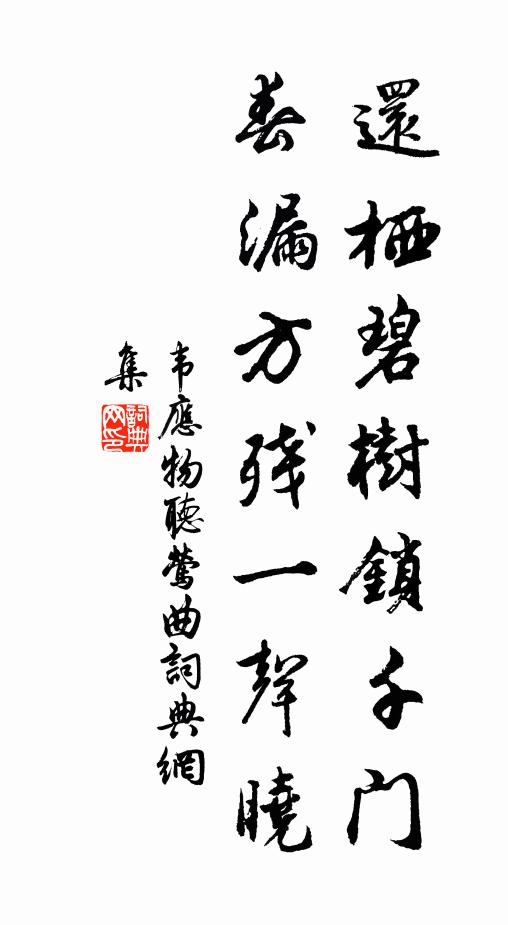 還栖碧樹鎖千门
春漏方残一聲曉
韦應物聽鶯曲詞典網
集
詞典
网印